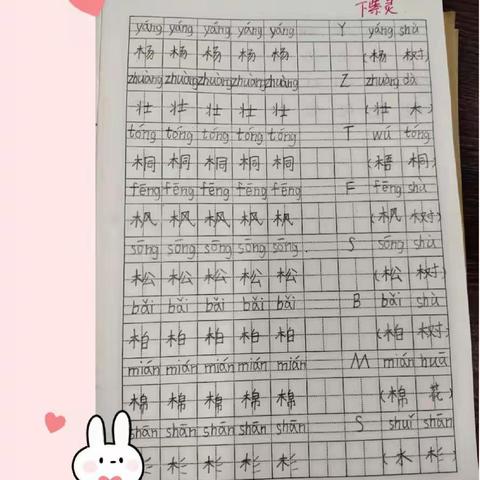 yáng yáng yáng yáng yáng Y yáng shù
杨 杨 杨 杨 杨 (杨 树)
zhuàng zhuàng zhuàng zhuàng zhuàng Z zhuàng dà
壮 壮 壮 壮 壮 (壮 大)
tóng tóng tóng tóng tóng T wú tóng
桐 桐 桐 桐 桐 (梧 桐)
fēng fēng fēng fēng fēng F fēng shù
枫 枫 枫 枫 枫 (枫 树)
sōng sōng sōng sōng sōng. S sōng shù
松 松 松 松 松 (松 树)
bǎi bǎi bǎi bǎi bǎi B bǎi shù
柏 柏 柏 柏 柏 (柏 树)
mián mián mián mián mián M mián huā
棉 棉 棉 棉 棉 (棉 花)
shān shān shān shān shān S shuǐ shān
杉 杉 杉 杉 杉 (水 杉)